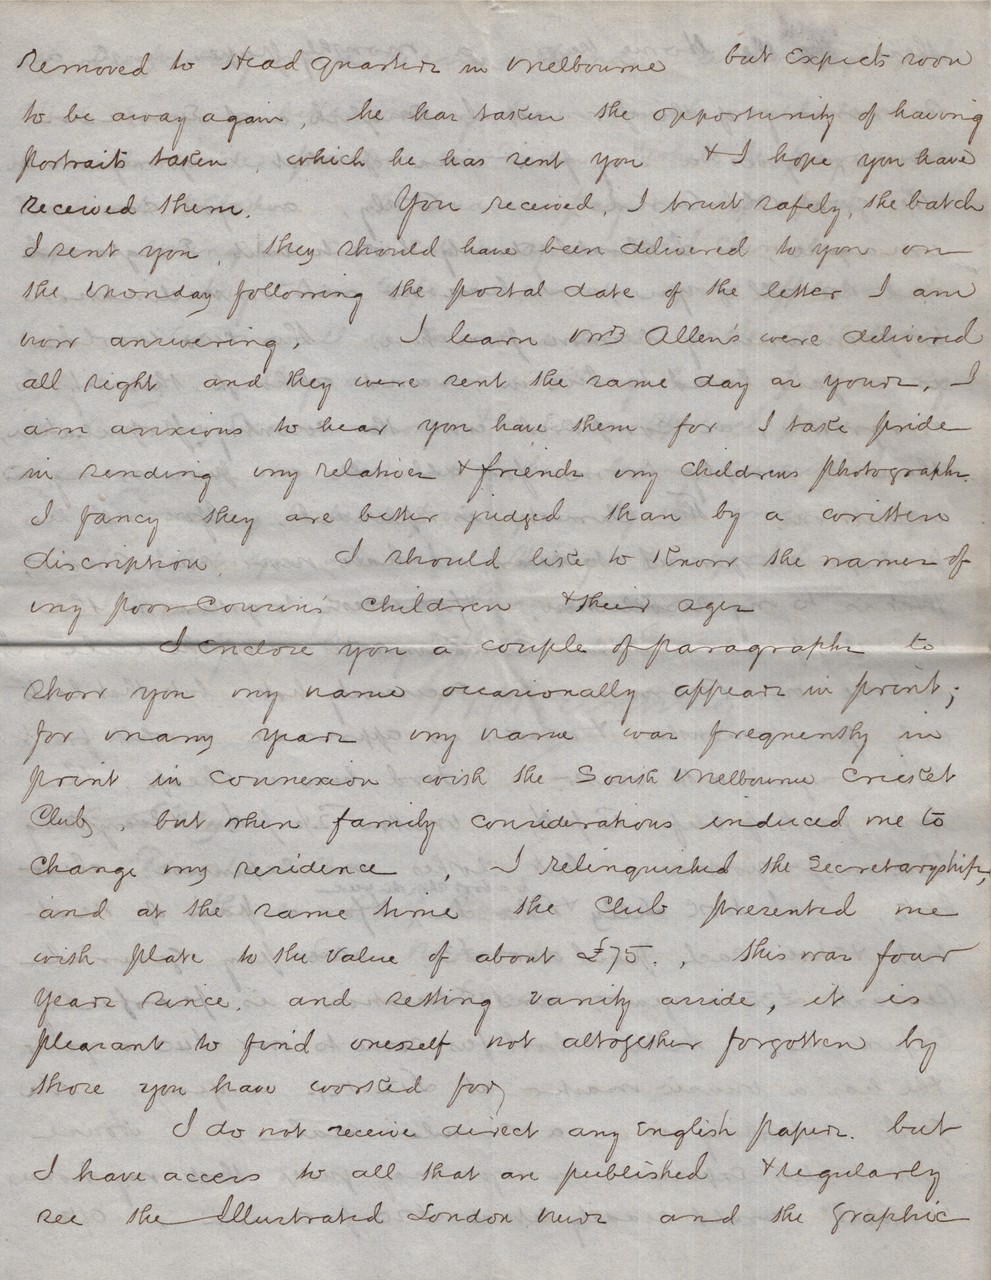 removed to Head quarters in Melbourne but expects soon
to be away again, he has taken the opportunity of having
portraits taken which he has sent you & I hope you have
received them. You received, I trust safely, the batch
I sent you, they should have been delivered to you on
the Monday following the postal date of the letter I am
now answering. I learn Mrs Allen's were delivered
all right and they were sent the same day as yours, I
am anxious to hear you have them for I take pride
in sending my relatives & friends my childrens photographs.
I fancy they are better judged than by a written
discription. I should like to know the names of
my poor Cousin's children & their ages
I enclose you a couple of paragraphs to
show you my name occasionally appears in print;
for many years my name was frequently in
print in connexion with the South Melbourne Cricket
Club, but when family considerations induced me to
change my residence, I relinquished the Secretaryship,
and at the same time the Club presented me
with plate to the value of about £75., this was four
years since, and setting vanity asside, it is
pleasant to find oneself not altogether forgotten by
those you have worked for,
I do not receive direct any English papers. but
I have access to all that are published & regularly
see the Illustrated London News and the Graphic